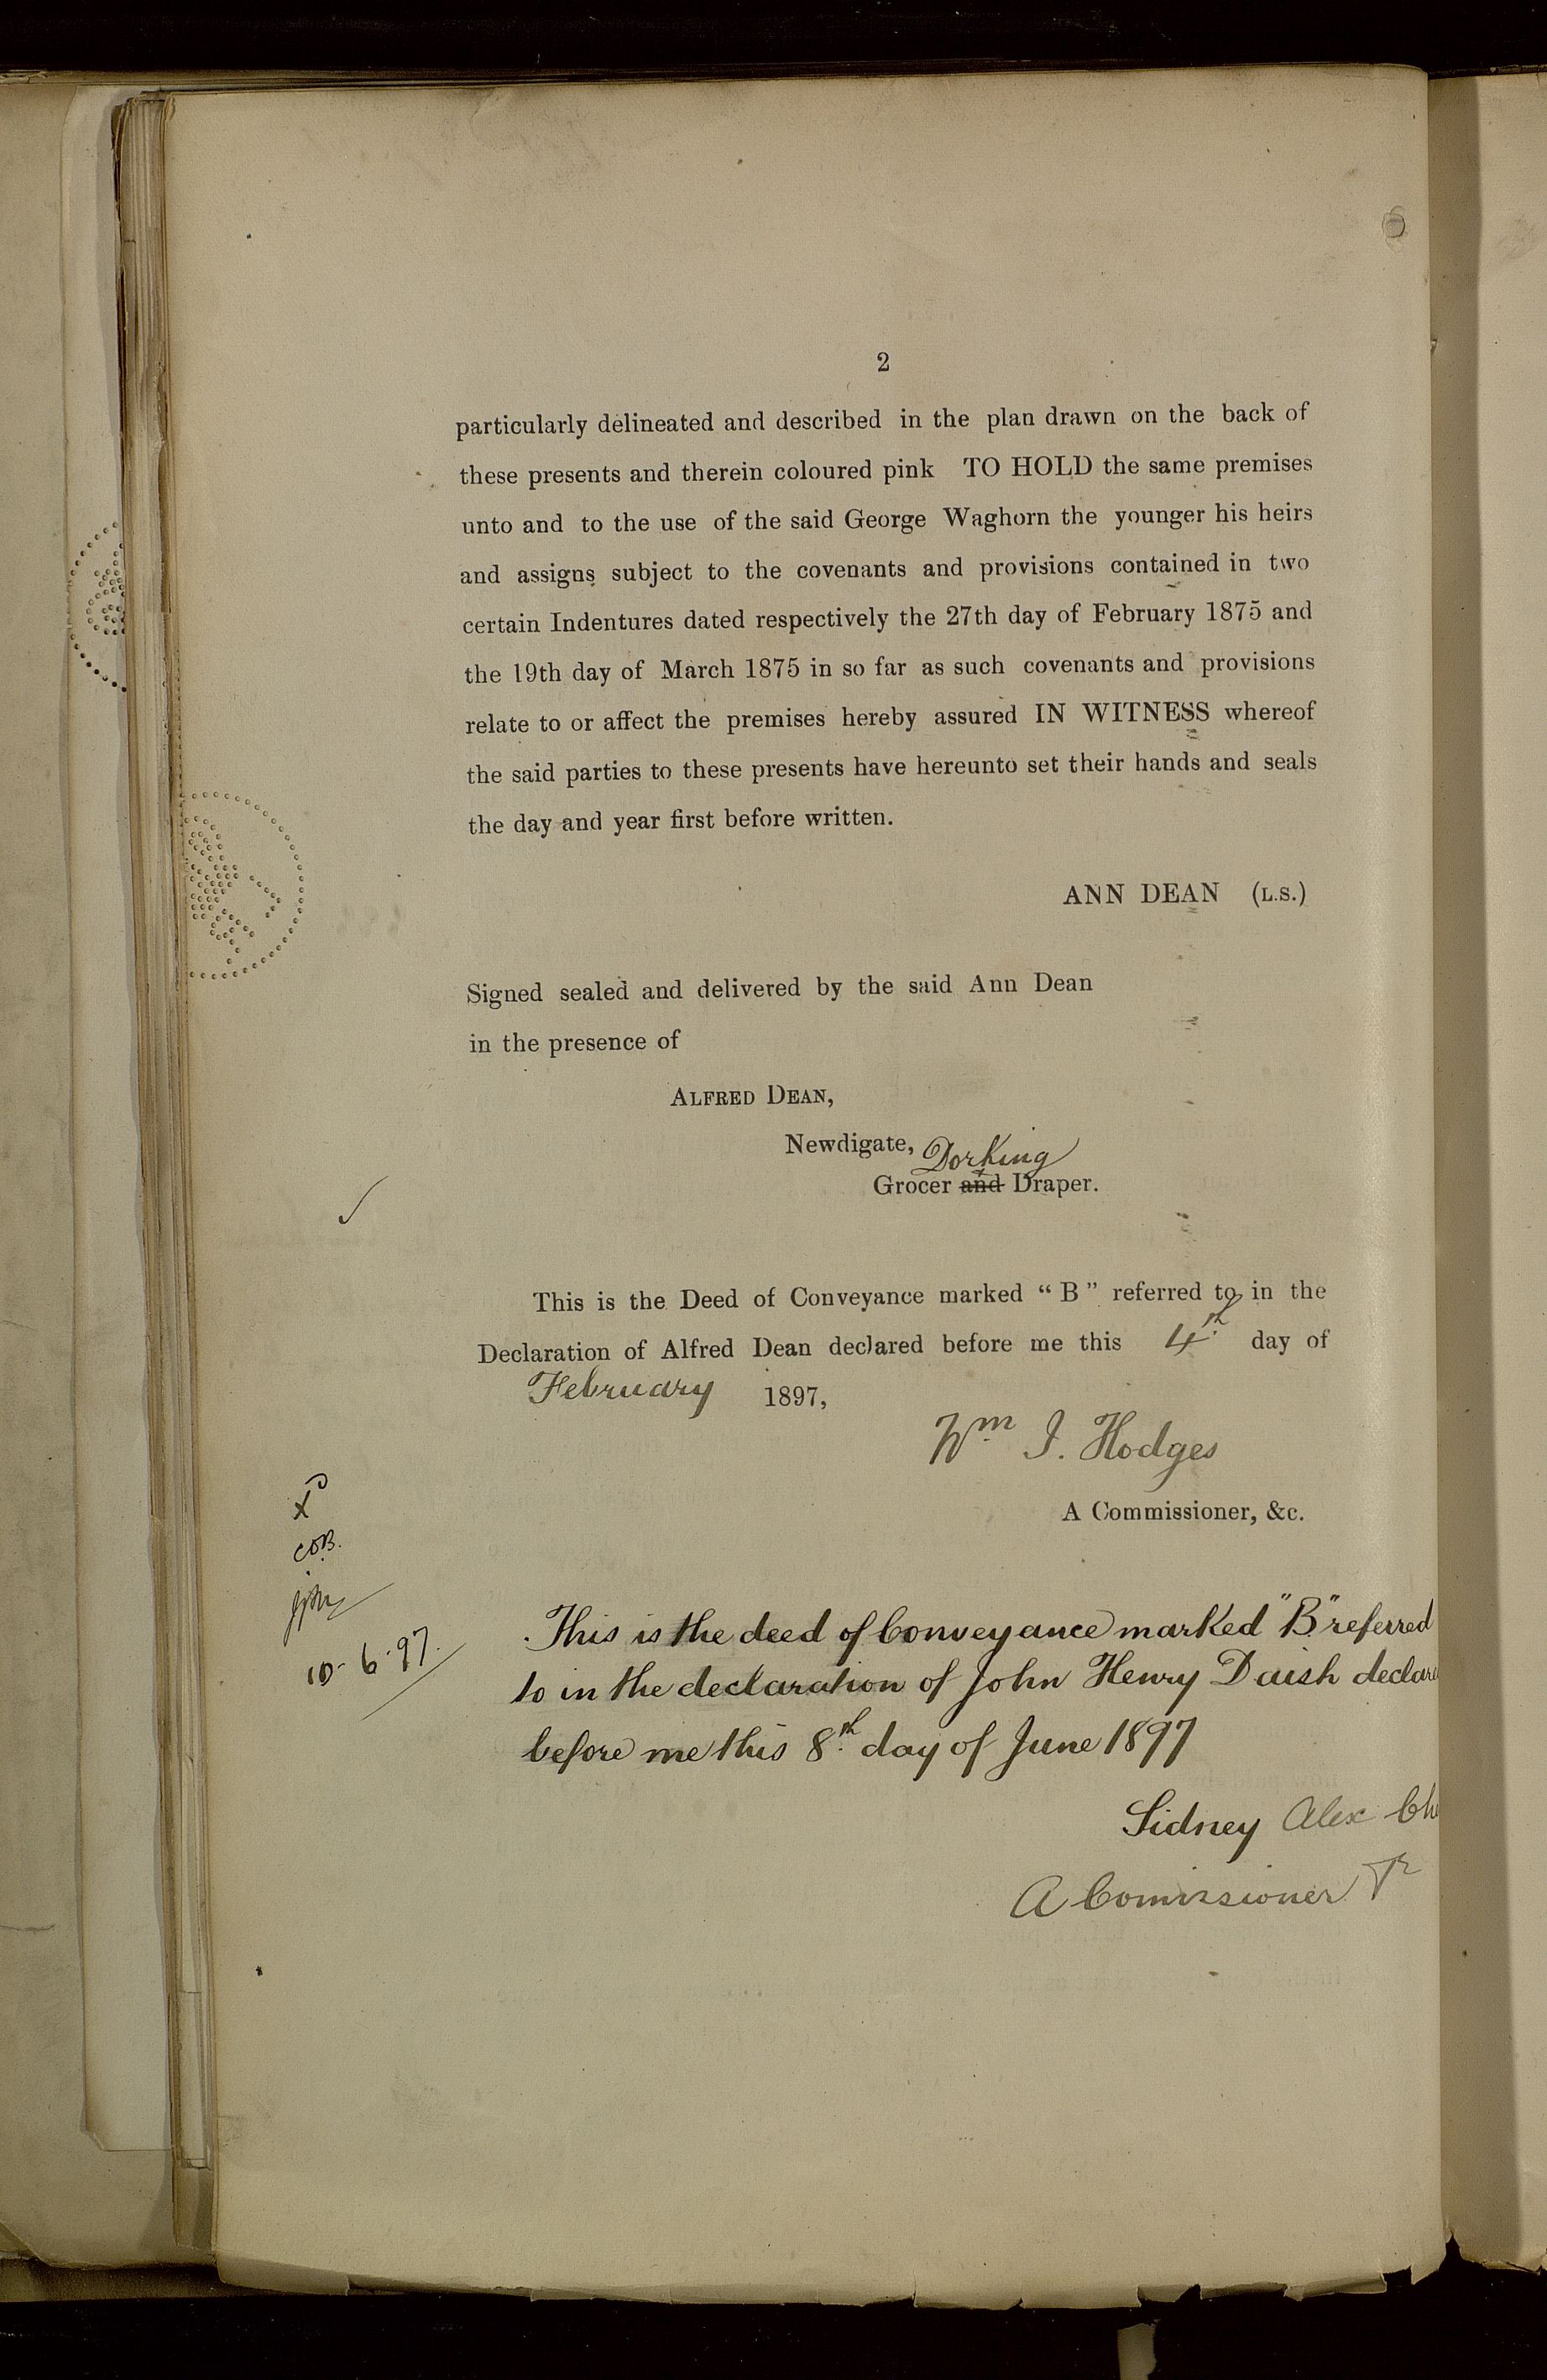 2
particularly delineated and described in the plan drawn on the back of
these presents and therein coloured pink TO HOLD the same premises
unto and to the use of the said George Waghorn the younger his heirs
and assigns subject to the covenants and provisions contained in two
certain Indentures dated respectively the 27th day of February 1875 and
the 19th day of March 1875 in so far as such covenants and provisions
relate to or affect the premises hereby assured IN WITNESS whereof
the said parties to these presents have hereunto set their hands and seals
the day and year first before written.
ANN DEAN (L.S.)
Signed sealed and delivered by the said Ann Dean
in the presence of
ALFRED DEAN,
Newdigate, Dorking
Grocer and Draper.
This is the Deed of Conveyance marked “B” referred to in the
Declaration of Alfred Dean declared before me this 4th day of
February 1897,
Wm I. Hodges
A Commissioner, &c.
COB.
10-6-97.
This is the deed of Conveyance marked "B" referred
to in the declaration of John Henry Daish declare
before me this 8th day of June 1897
Sidney Alex Ch
A Comissioner